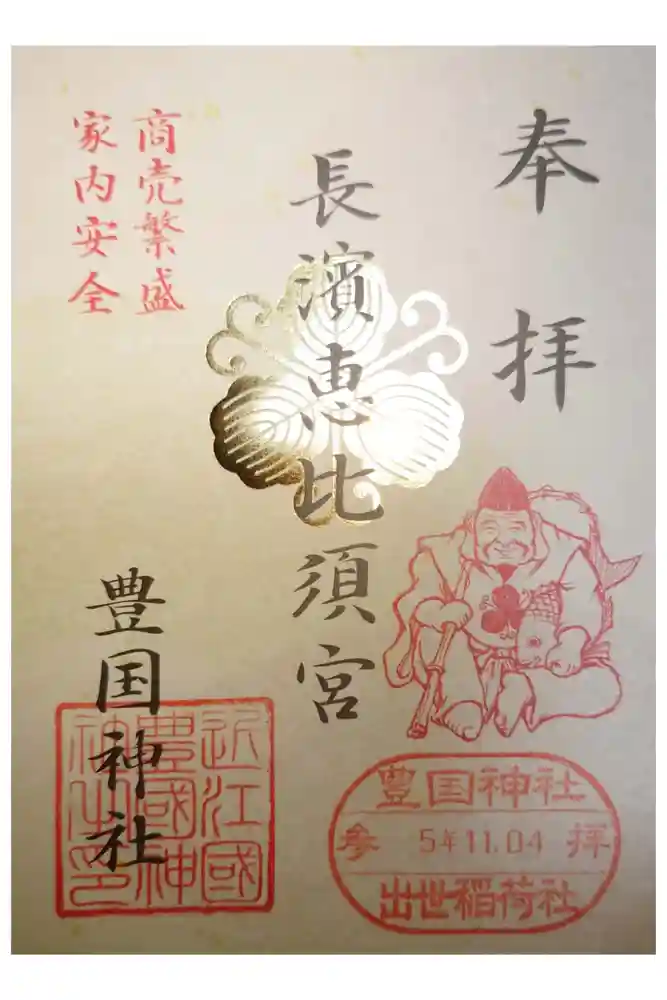 奉拝
長濱恵比須宮
商売繁盛
家内安全
豊国神社
近江國
豊國神
神印
豊国神社
参 5年11.04 拝
出世稲荷社